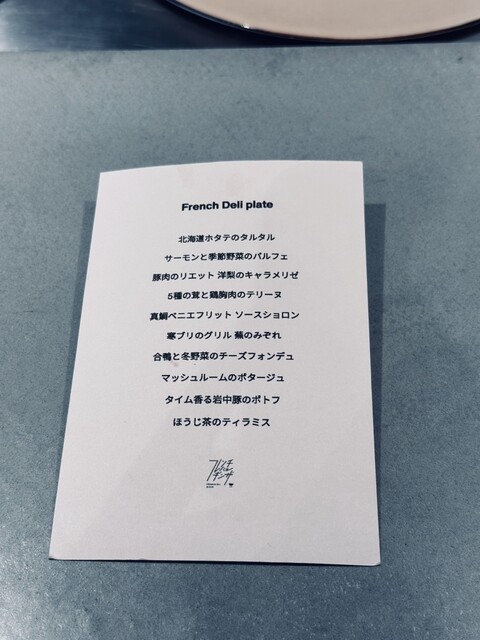 French Deli plate
北海道ホタテのタルタル
サーモンと季節野菜のパルフェ
豚肉のリエット 洋梨のキャラメリゼ
5種の茸と鶏胸肉のテリーヌ
真鯛ベニエフリット ソースショロン
寒ブリのグリル 蕪のみぞれ
合鴨と冬野菜のチーズフォンデュ
マッシュルームのポタージュ
タイム香る岩中豚のポトフ
ほうじ茶のティラミス